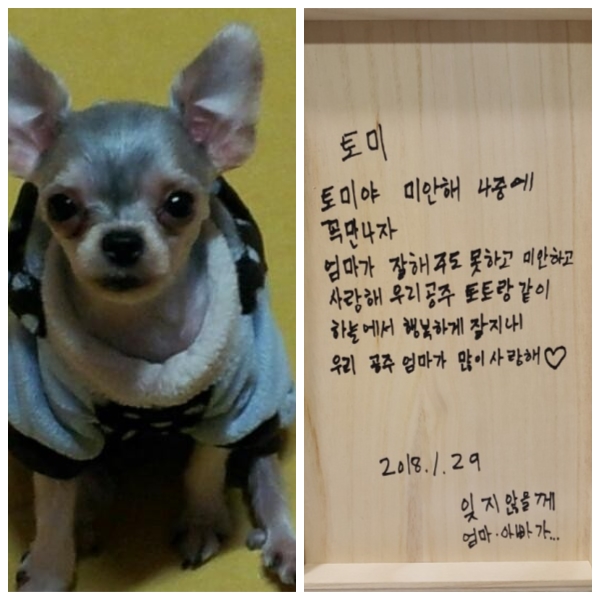 토미
토미야 미안해 나중에
꼭만나자
엄마가 잘해주도 못하고 미안하고
사랑해 우리공주 토토랑 같이
하늘에서 행복하게 잘지내
우리 공주 엄마가 많이사랑해♡
2018.1.29
잊지않을께
엄마·아빠가...